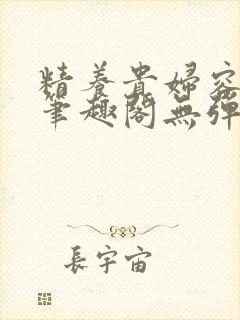 精養貴婦容
筆趣閣無彈
長宇宙